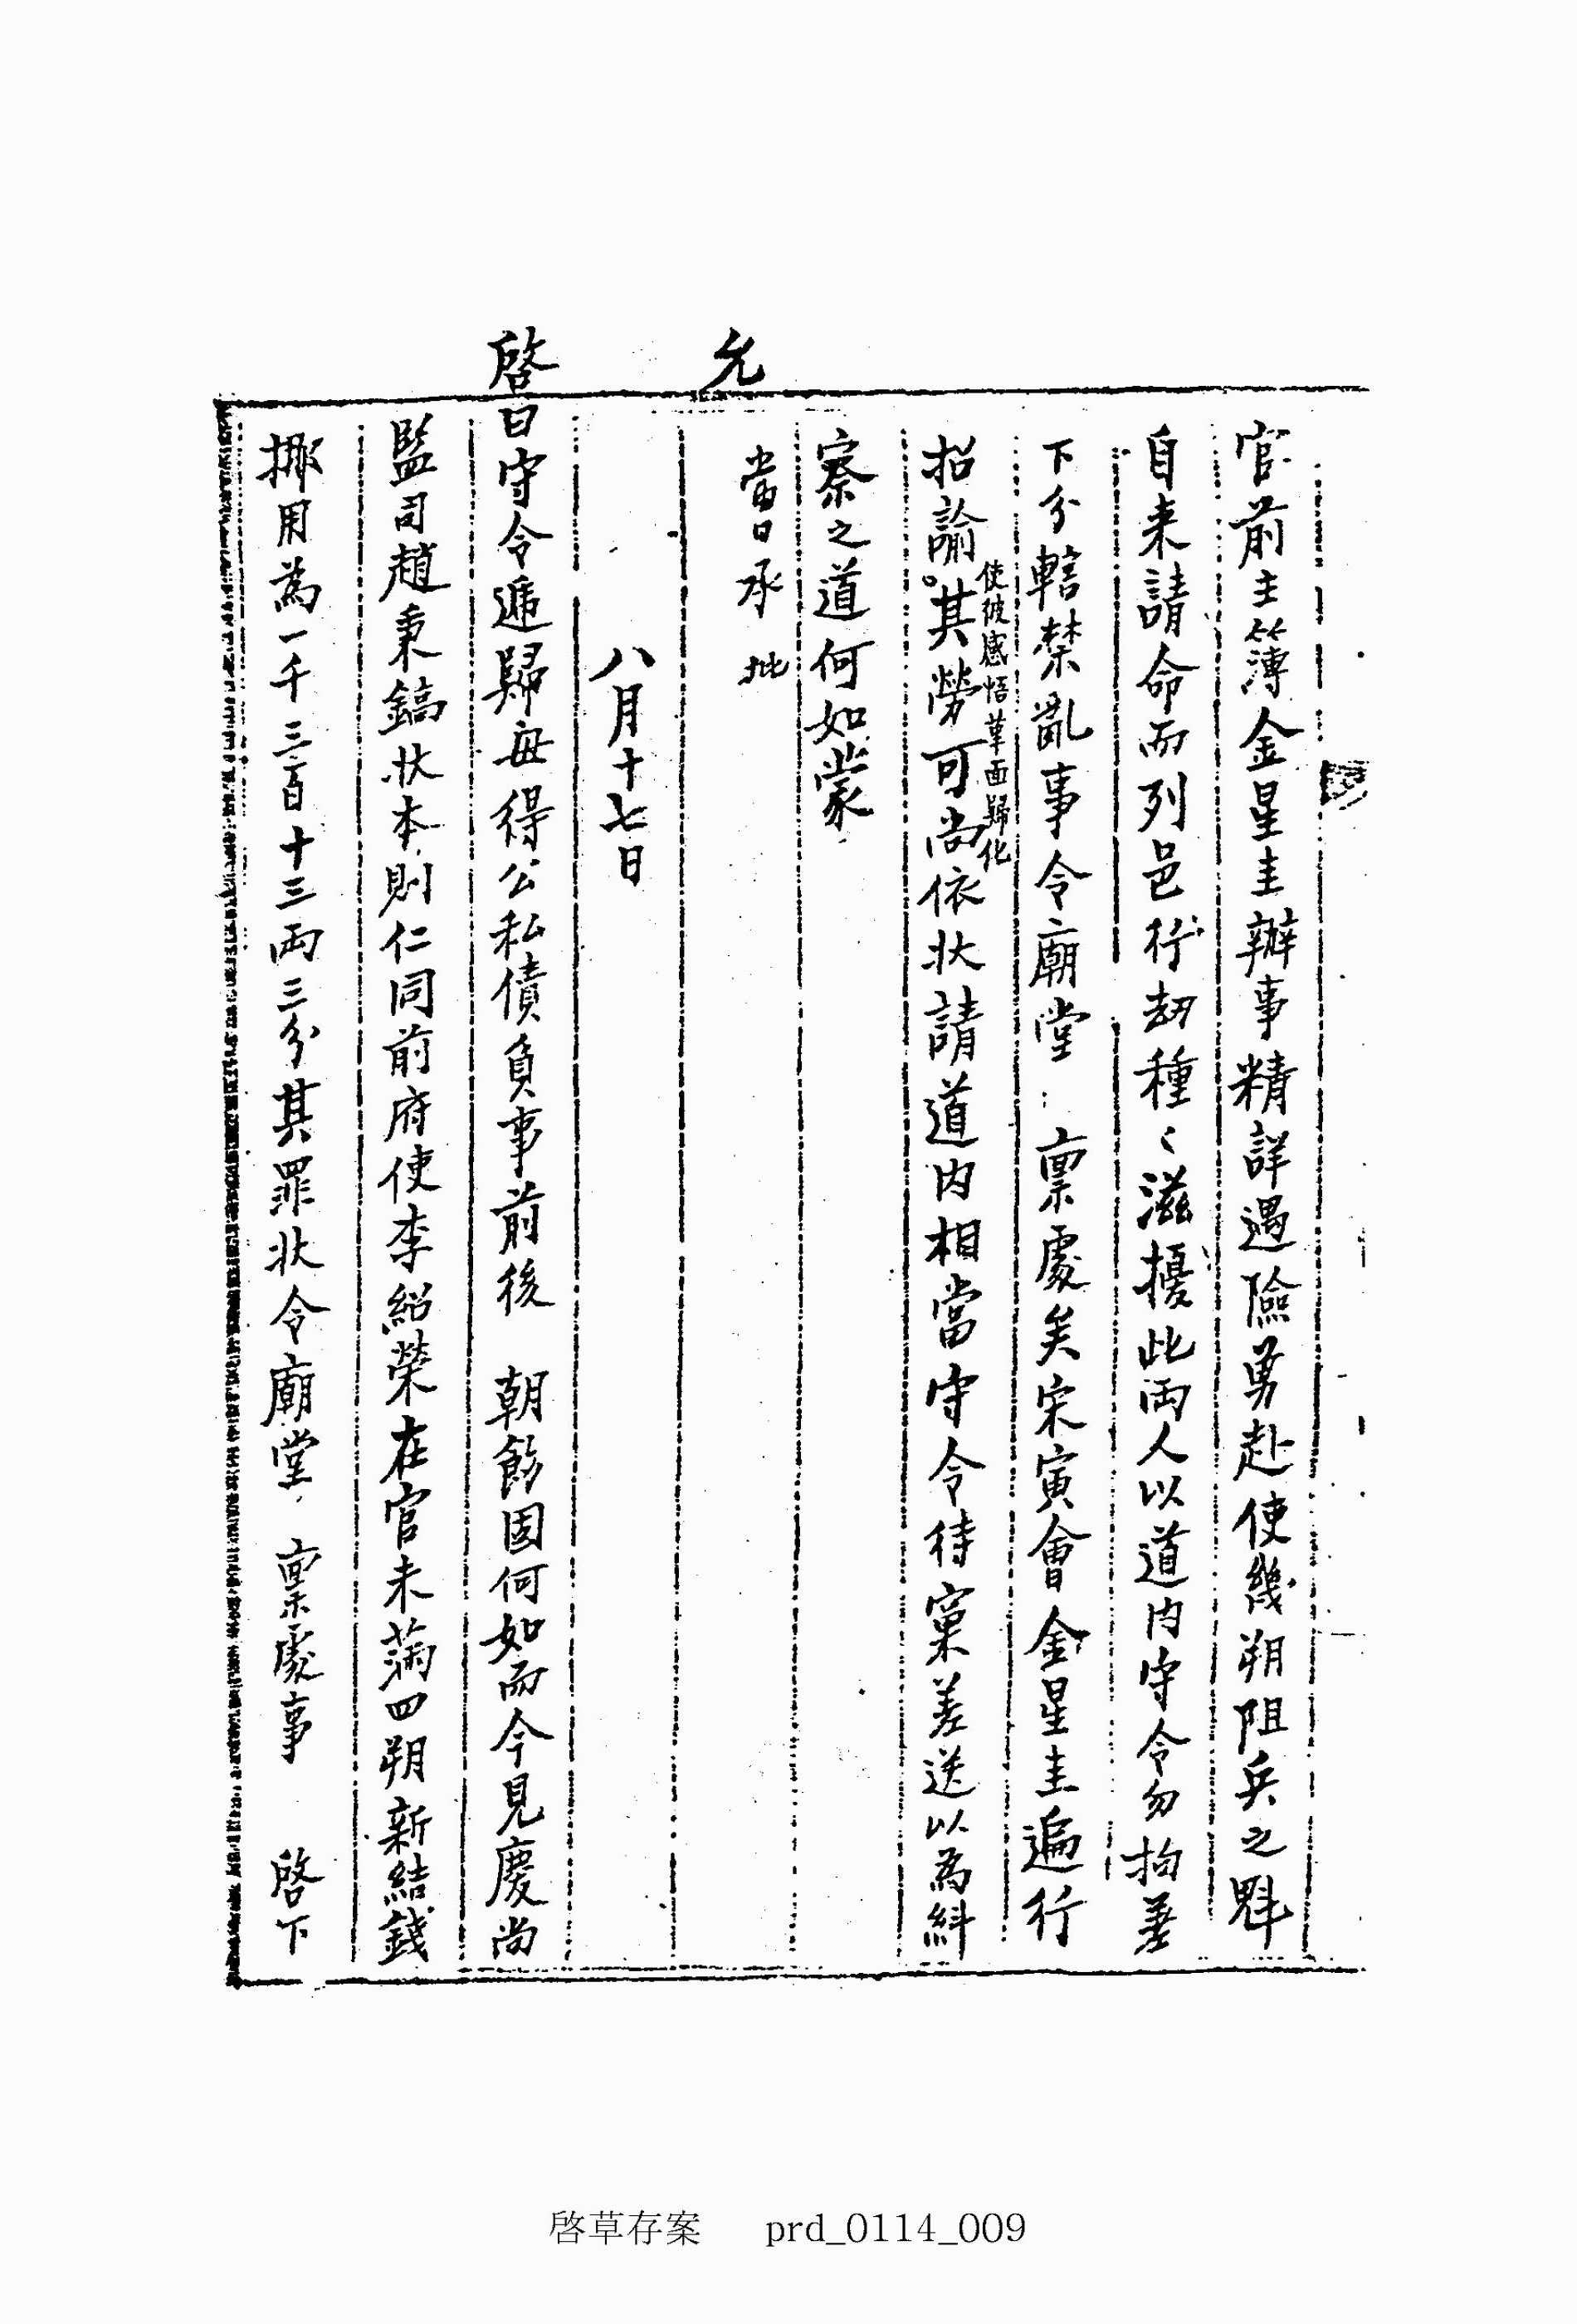 官前主簿金星圭辦事精詳遇險勇赴使幾朔阻兵之魁
自来請命而列邑行劫種〻滋擾此兩人以道內守令勿拘差
下分轄禁亂事令廟堂 稟處矣宋寅會金星圭遍行
招諭使彼感悟革面歸化其勞可尚依狀請道內相當守令待窠差送以為糾
察之道何如蒙
允
當日承 批
八月十七日
啓曰守令遞歸毋得公私債負事前後 朝飭固何如而今見慶尚
監司趙秉鎬狀本則仁同前府使李紹榮在官未滿四朔新結錢
挪用為一千三百十三兩三分其罪狀令廟堂 稟處事 啓下
啓草存案 prd_0114_009